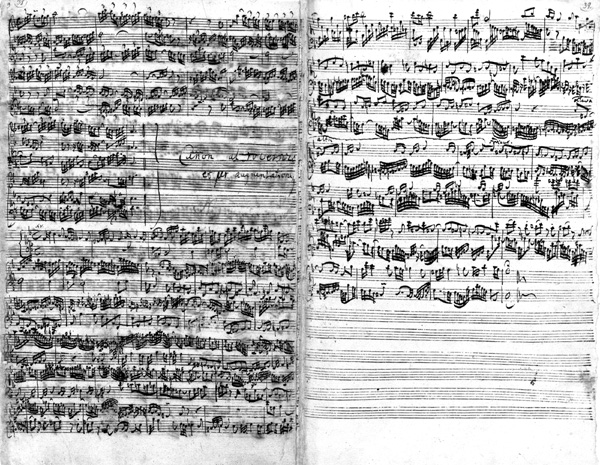 38
Canon al roverscio
et per augmentationem